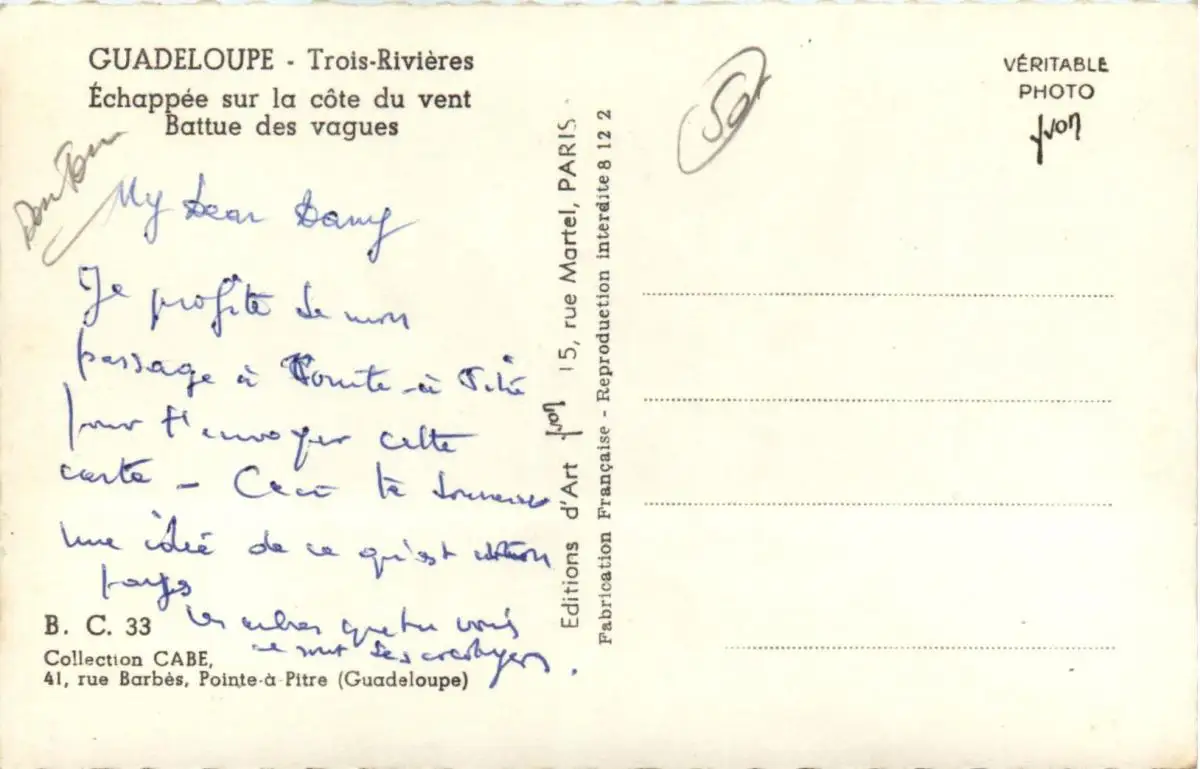 GUADELOUPE - Trois-Rivières
Échappée sur la côte du vent
Battue des vagues
My Dear Dany
Je profite de mon
passage à Pointe-à-Pitre
pour t'envoyer cette
carte - Ceci te donnera
une idée de ce qu'est mon
pays
les arbres que tu vois
ce sont des cocotiers.
B. C. 33
Collection CABE,
41, rue Barbès, Pointe-à-Pitre (Guadeloupe)
Editions d'Art yvon 15, rue Martel, PARIS.
Fabrication Française - Reproduction interdite 8 12 2
VÉRITABLE
PHOTO
yvon